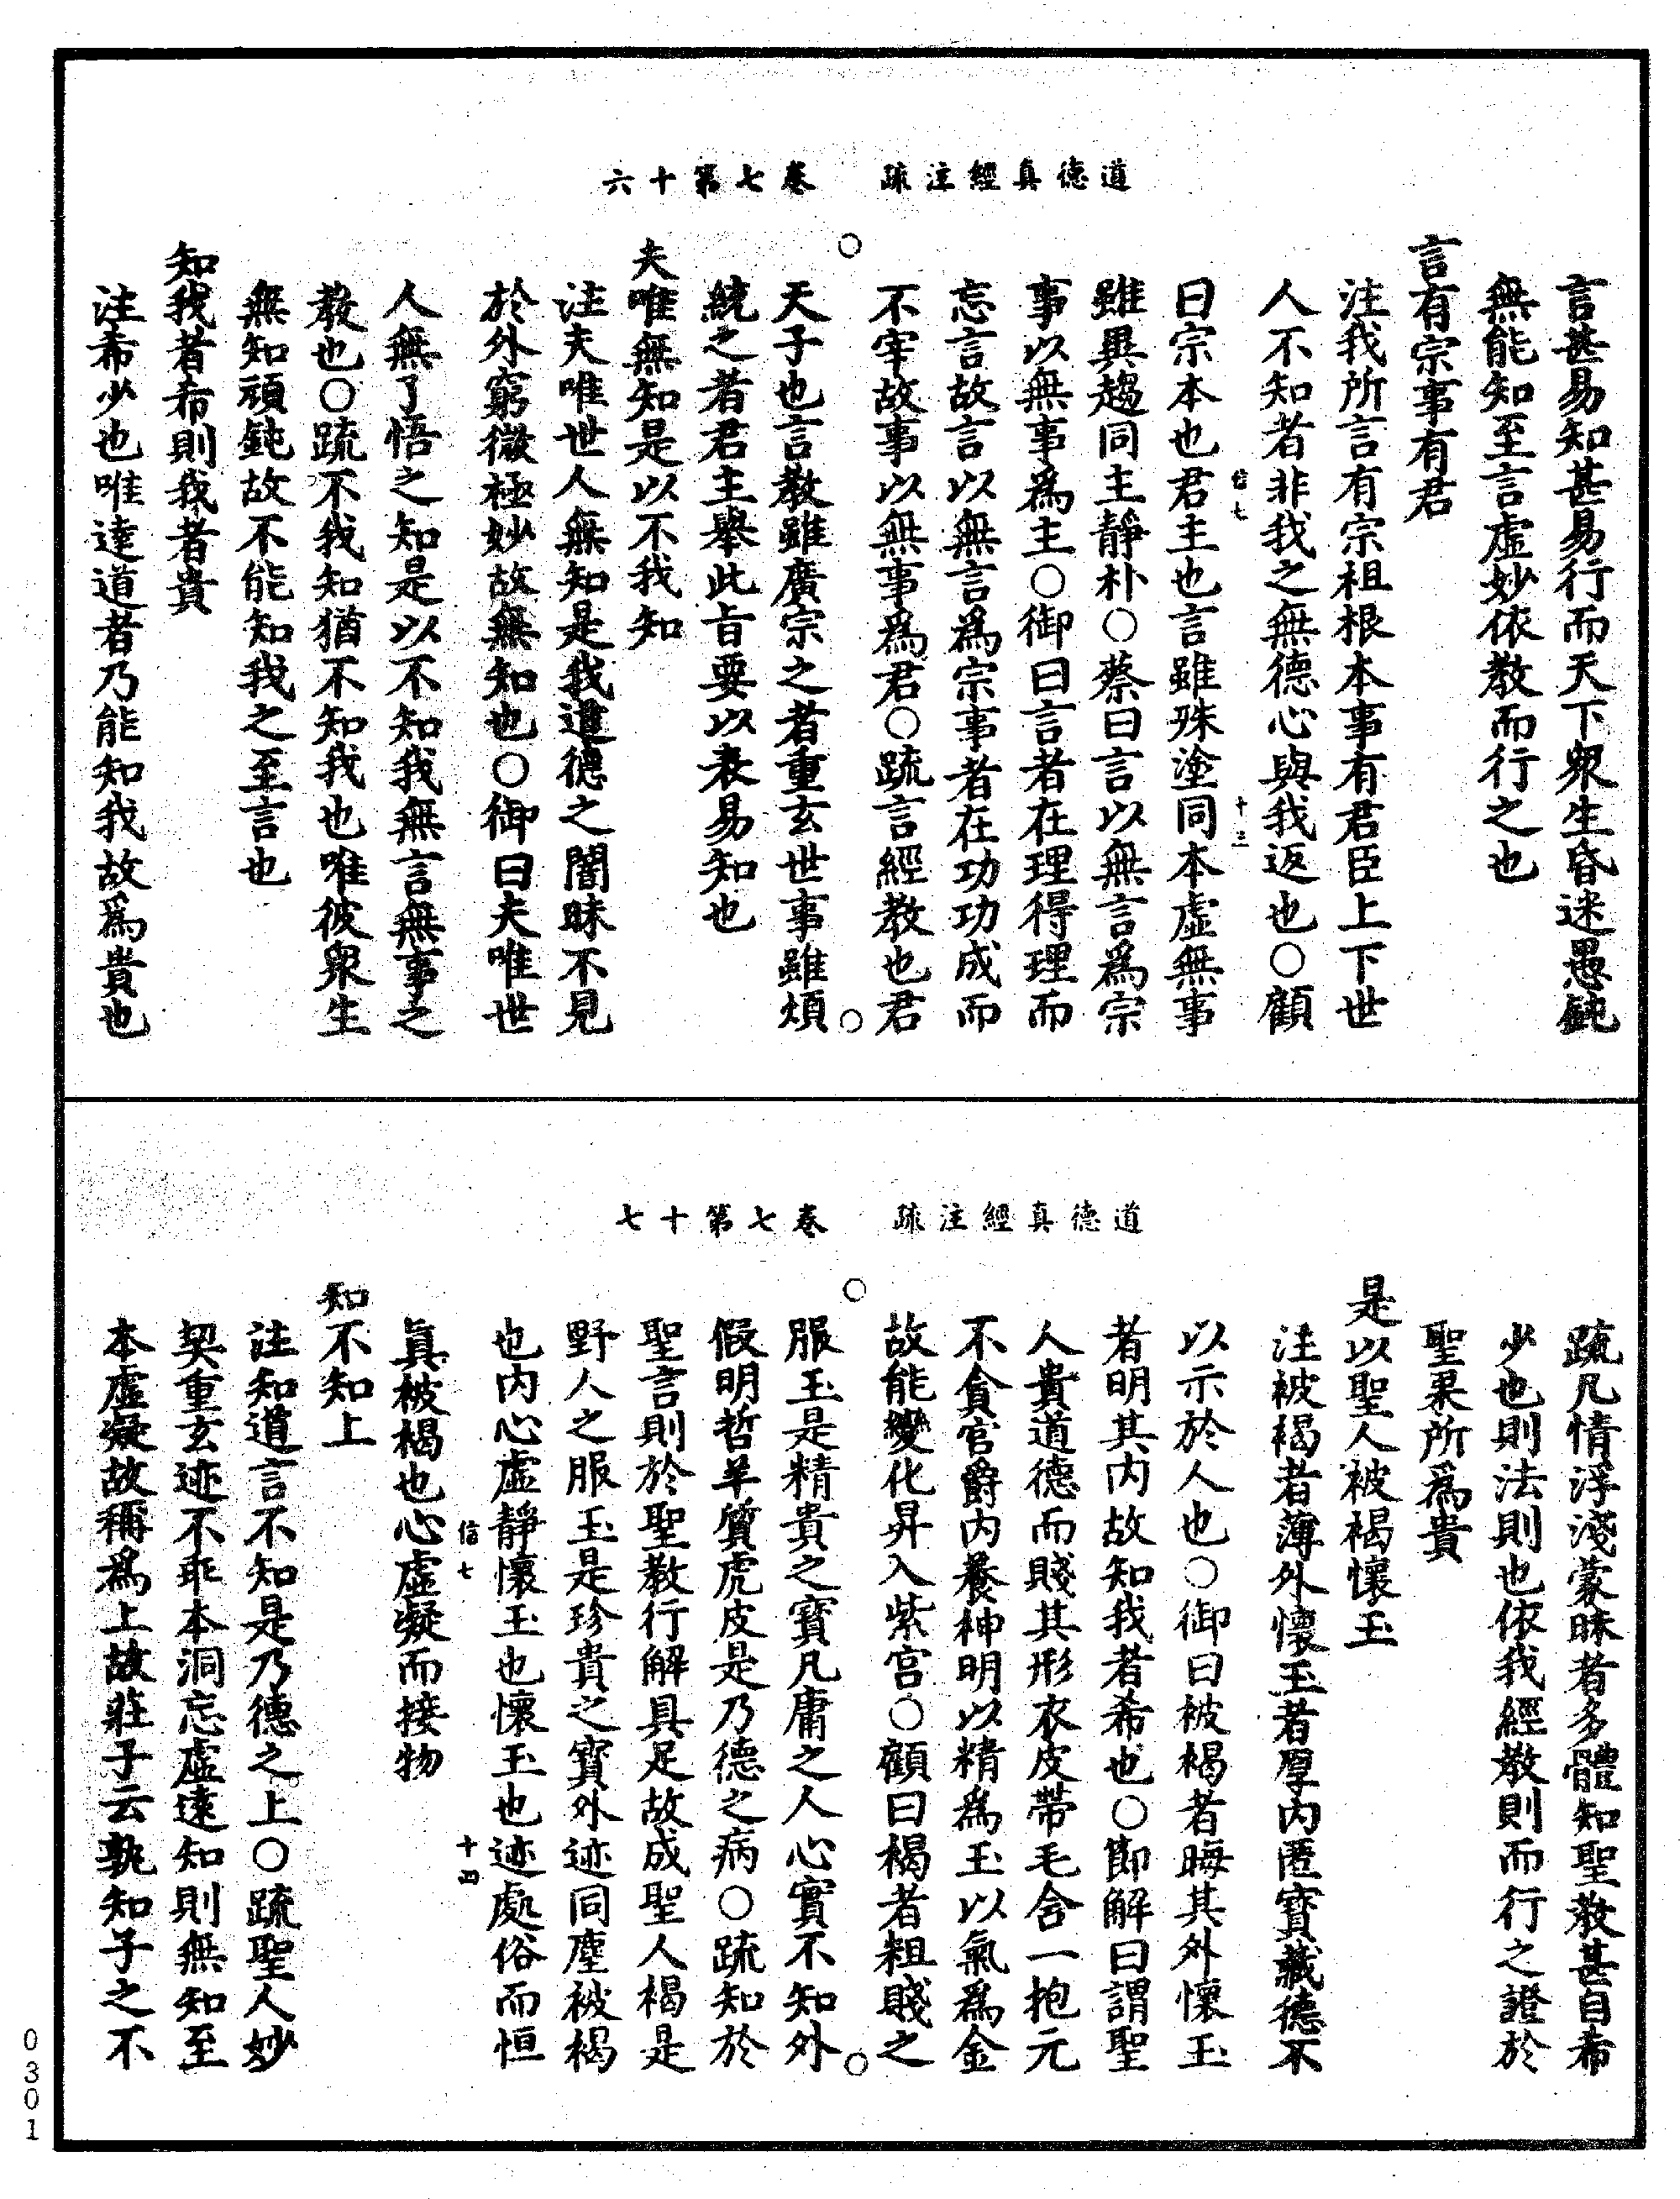 道德真經注疏　卷七第十六
言甚易知甚易行而天下衆生昏迷愚鈍
無能知至言虛妙依教而行之也
言有宗事有君
注我所言有宗祖根本事有君臣上下世
人不知者非我之無德心與我返也○顧
信七　十三
曰宗本也君主也言雖殊塗同本虛無事
雖異趨同主靜朴○蔡曰言以無言爲宗
事以無事爲主○御曰言者在理得理而
忘言故言以無言爲宗事者在功功成而
不宰故事以無事爲君○疏言經教也君
天子也言教雖廣宗之者重玄世事雖煩
統之者君主舉此旨要以表易知也
夫唯無知是以不我知
注夫唯世人無知是我道德之闇昧不見
於外窮微極妙故無知也○御曰夫唯世
人無了悟之知是以不知我無言無事之
教也○疏不我知猶不知我也唯彼衆生
無知頑鈍故不能知我之至言也
知我者希則我者貴
注希少也唯達道者乃能知我故爲貴也
道德真經注疏　卷七第十七
疏凡情浮淺蒙昧者多體知聖教甚自希
少也則法則也依我經教則而行之證於
聖果所爲貴
是以聖人被褐懷玉
注被褐者薄外懷玉者厚內匿寶藏德不
以示於人也○御曰被褐者晦其外懷玉
者明其内故知我者希也○節解曰謂聖
人貴道德而賤其形衣皮帶毛含一抱元
不貪官爵内養神明以精爲玉以氣爲金
故能變化昇入紫宮○顧曰褐者粗賤之
服玉是精貴之寶凡庸之人心實不知外
假明哲羊質虎皮是乃德之病○疏知於
聖言則於聖教行解具足故成聖人褐是
野人之服玉是珍貴之寶外迹同塵被褐
也内心虛靜懷玉也懷玉也迹處俗而恒
信七　十四
眞被褐也心虛凝而接物
知不知上
注知道言不知是乃德之上○疏聖人妙
契重玄迹不乖本洞忘虛遠知則無知至
本虛凝故稱爲上故莊子云孰知子之不
0301